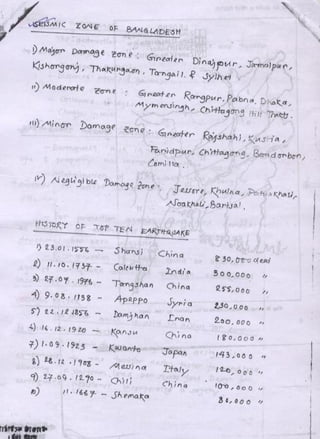 SEISMIC ZONE OF BANGLADESH
i) Major Damage zone : Greater Dinajpur, Jamalpur,
Kishorgonj, Thakurgaon, Tangail & Sylhet
ii) Moderate zone : Greater Rangpur, Pabna, Dhaka,
Mymensingh, Chittagong Hill Tracts.
iii) Minor Damage zone : Greater Rajshahi, Kustia,
Faridpur, Chittagong, Bandorbon,
Comilla.
iv) Negligible Damage Zone : Jessore, Khulna, Potuakhali,
Noakhali, Barisal.
HISTORY OF TOP TEN EARTHQUAKE
1) 23.01.1556 — Shansi China 830,000 dead
2) 11.10.1737 — Calcutta India 300,000 "
3) 27.07.1976 — Tangshan China 255,000 "
4) 9.08.1138 — Aleppo Syria 230,000 "
5) 22.12.856 — Damghan Iran 200,000 "
6) 16.12.1920 — Kansu China 180,000 "
7) 1.09.1923 — Kwanto Japan 143,000 "
8) 28.12.1908 — Messina Italy 120,000 "
9) 27.09.1290 — Chili China 100,000 "
10) 11.1667 — Shemaka 80,000 "